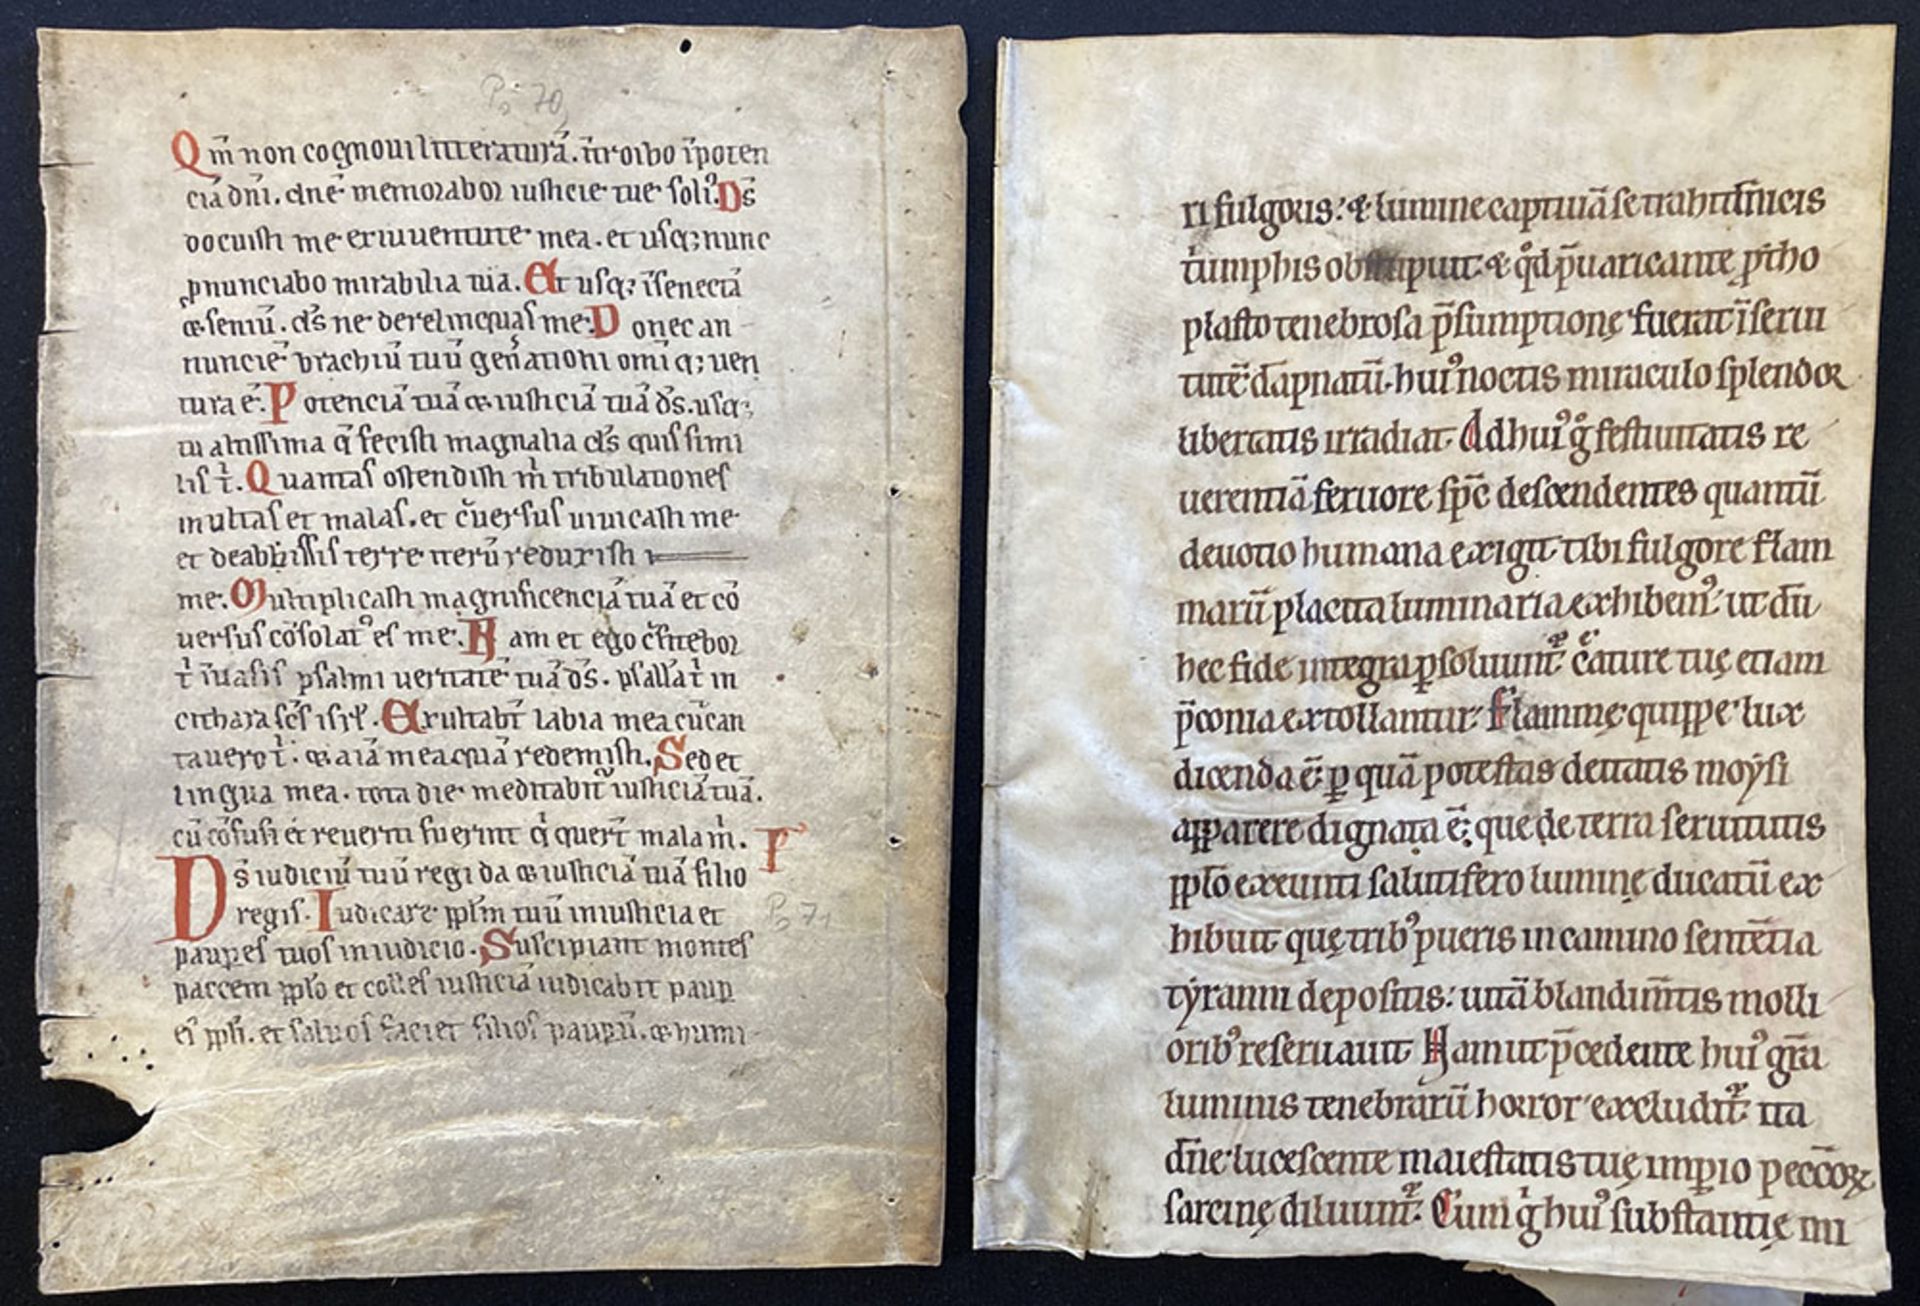 Ps 70
Qm̄ non cognoui litteraturā. ītroibo īpoten
ciā dn̄i. dn̄e memorabor iusticie tue soliꝰ. Ds̄
docuisti me ex iuuentute mea. et usqꝫ nunc
ꝓnunciabo mirabilia tua. Et usqꝫ ī senectā
& seniū. ds̄ ne derelinquas me. Donec an
nuncie brachiū tuū gen̄ationi om̄i qꝫ uen
tura ē. Potenciā tuā & iusticiā tuā ds̄. usqꝫ
in altissima q̄ fecisti magnalia ds̄ quis simi
lis t̄. Quantas ostendisti m̄ tribulationes
multas et malas. et c̄uersus uiuicasti me
et de abbissis terre iterū reduxisti
me. Multiplicasti magnificenciā tuā et cō
uersus cōsolatꝰ es me. Nam et ego c̄fitebor
t̄ ī uasis psalmi ueritatē tuā ds̄. psallā t̄ in
cithara sc̄s isrl̄. Exultabt̄ labia mea cū can
tauero t̄. & aīā mea quā redemisti. Sed et
lingua mea. tota die meditabit̄ iusticiā tuā.
cū cōfusi et reuerti fuerint q̄ quer̄t mala m̄. P
Ds̄ iudiciū tuū regi da & iusticiā tuā filio
regis. Iudicare ppl̄m tuū in iusticia et
Ps 71
pauꝑes tuos in iudicio. Suscipiant montes
paccem ppl̄o et colles iusticiā iudicabit pauꝑ
es ppl̄i. et saluos faciet filios pauꝑū. & humi
ri fulgoris: & lumine captiuā se trahi dn̄icis
t̄umphis obstupuit: & qd̄ p̄uaricante ꝓtho
plasto tenebrosa p̄sumptionę fuerat ī serui
tutē dāpnatū. huiꝰ noctis miraculo splendor
libertatis irradiat. Ad huiꝰ g̊ festiuitatis re
uerentiā feruore sp̄c descendentes quantū
deuotio humana exigit. tibi fulgore flam
marū placita luminaria exhibemꝰ. ut dū
hec fide integra ꝑsoluunt᷑. c̄ature tuę etiam
p̄conia extollantur. Flammę quippe lux
dicenda ē. ꝑ quā potestas deitatis moẏsi
apparere dignata ē. que de terra seruitutis
ppl̄o exeunti salutifero luminę ducatū ex
hibuit. quę tribꝰ pueris in camino sentētia
tẏranni depositis: uitā blandim̄tis molli
oribꝰ reseruauit. Nam ut p̄cedente huiꝰ gr̄a
luminis tenebrarū horror excludit᷑. ita
dn̄e lucescente maiestatis tuę imꝑio pecc̄oꝝ
sarcinę diluunt᷑. Cum g̊ huiꝰ substantię mi